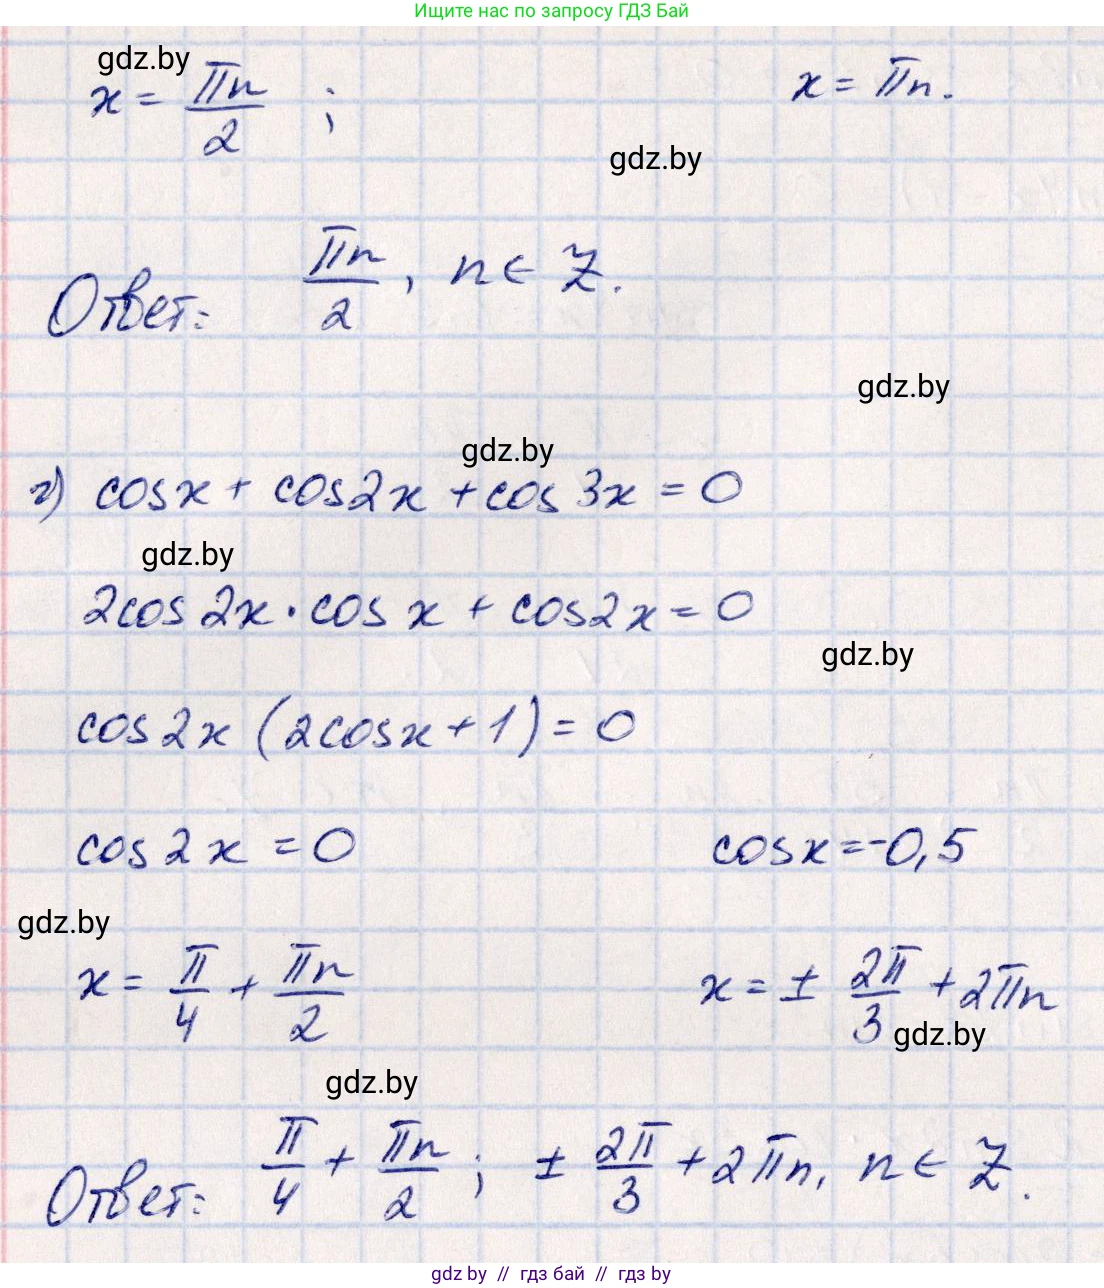 Ищите нас по запросу ГДЗ Бай
gdz.by
x = πn/2 ; x = πn.
gdz.by
Ответ: πn/2, n ∈ Z.
gdz.by
gdz.by
г) cosx + cos2x + cos3x = 0
gdz.by
2cos2x · cosx + cos2x = 0
gdz.by
cos2x (2cosx + 1) = 0
cos2x = 0 cosx = -0,5
gdz.by
x = π/4 + πn/2 x = ± 2π/3 + 2πn
gdz.by
gdz.by
Ответ: π/4 + πn/2 ; ± 2π/3 + 2πn, n ∈ Z.
gdz by // гдз бай // гдз by